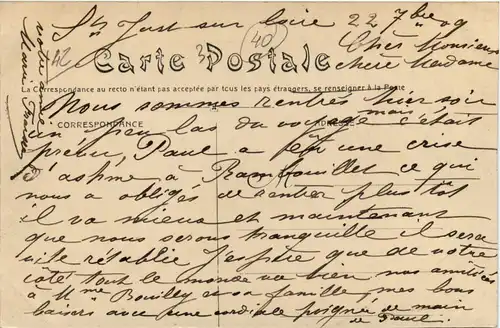 St Just sur Loire 22 7bre 09
42 3 40
Cher Monsieur
chère Madame
Carte Postale
La Correspondance au recto n'étant pas acceptée par tous les pays étrangers, se renseigner à la Poste
CORRESPONDANCE ADRESSE
Nous sommes rentrés hier soir
un peu las du voyage mais c'était
prévu Paul a eu une crise
d'asthme à Rambouillet ce qui
nous a obligés de rentrer plus tôt
il va mieux et maintenant
que nous serons tranquille il sera
vite rétabli J'espère que de votre
côté tout le monde va bien nos amitiés
à Mme Bouilly et sa famille, mes bons
baisers avec une cordiale poignée de main
de Paul.
votre amie
Marie